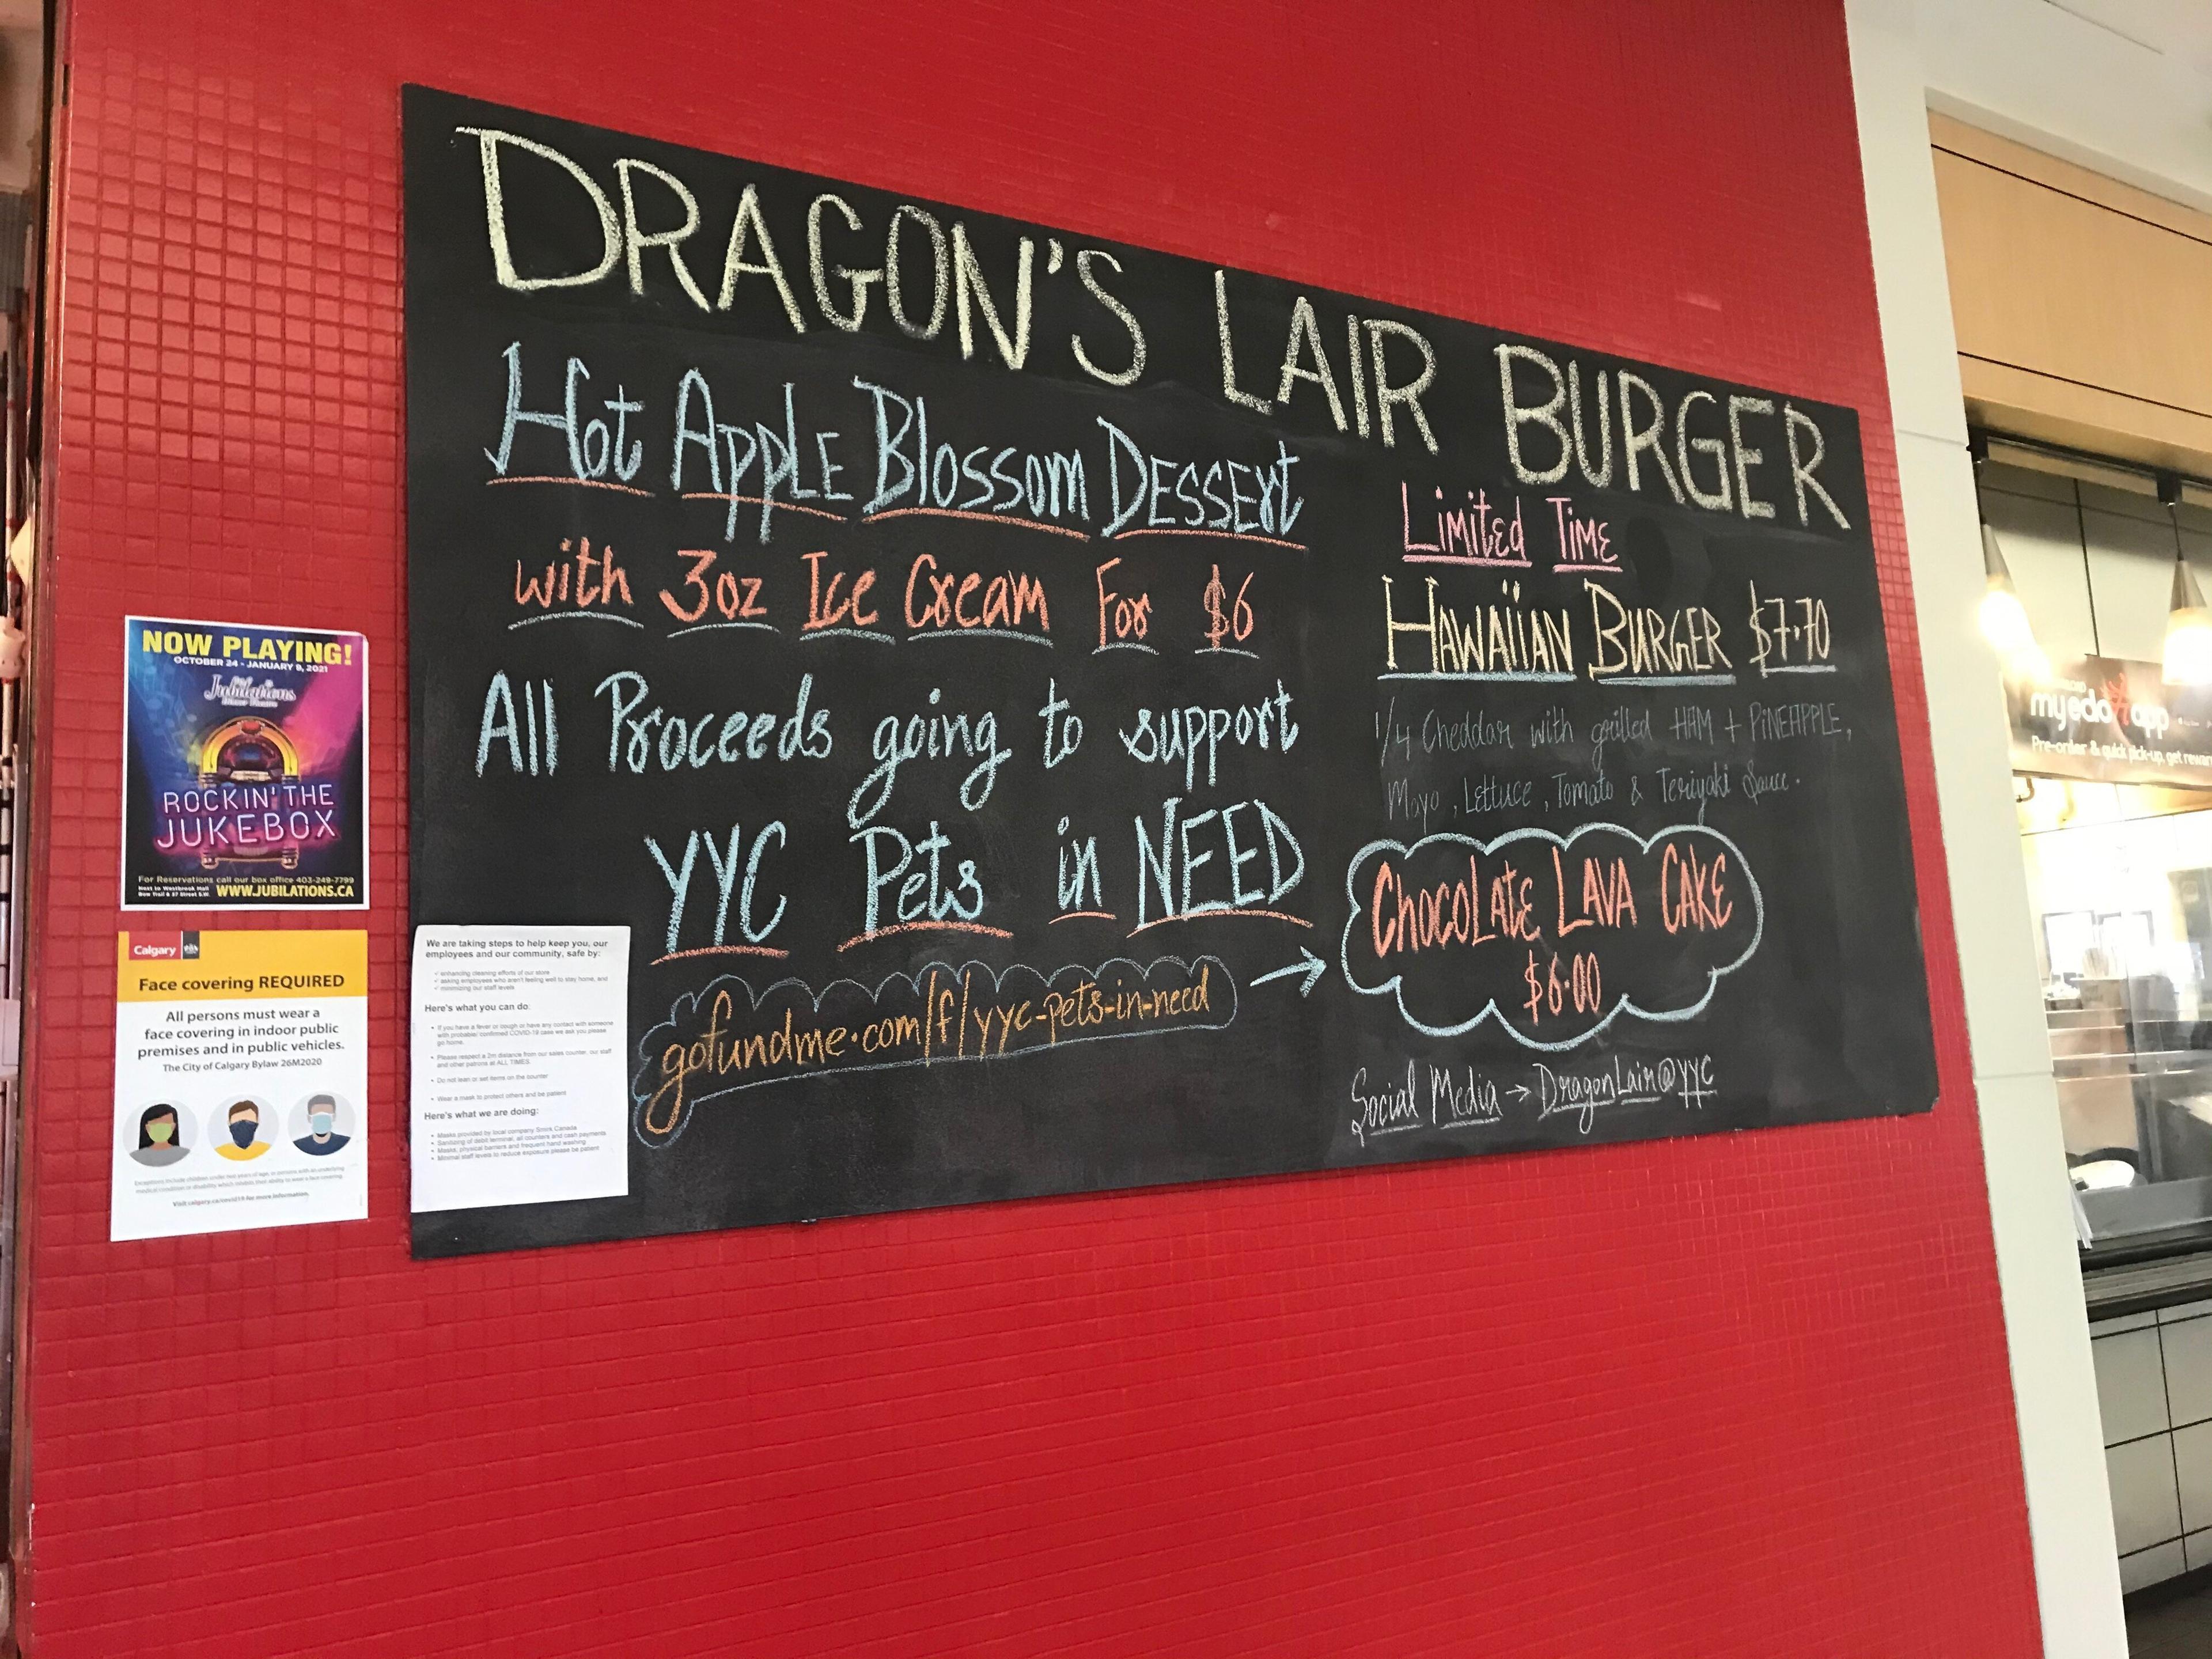 DRAGON'S LAIR BURGER
Hot APPLE Blossom DESSERt
with 3oz Ice Cream For $6
All Proceeds going to support
YYC Pets in NEED
gofundme.com/f/yyc-pets-in-need
LimitEd TimE
HAWAiiAN BURGER $7.70
1/4 Cheddar with grilled HAM + PiNEAPPLE,
Mayo, Lettuce, Tomato & Teriyaki Sauce.
ChocoLAtE LAVA CAKE
$6.00
Social Media → DragonLair@yyc
NOW PLAYING!
OCTOBER 24 - JANUARY 9, 2021
Jubilations
Dinner Theatre
ROCKIN' THE
JUKEBOX
For Reservations call our box office 403-249-7799
Next to Westbrook Mall
Bow Trail & 37 Street S.W.
WWW.JUBILATIONS.CA
Calgary
Face covering REQUIRED
All persons must wear a
face covering in indoor public
premises and in public vehicles.
The City of Calgary Bylaw 26M2020
Exceptions include children under two years of age, or persons with an underlying
medical condition or disability which inhibits their ability to wear a face covering.
Visit calgary.ca/covid19 for more information.
We are taking steps to help keep you, our
employees and our community, safe by:
✓ enhancing cleaning efforts of our store
✓ asking employees who aren't feeling well to stay home, and
✓ minimizing our staff levels
Here's what you can do:
• If you have a fever or cough or have any contact with someone
with probable/confirmed COVID-19 case we ask you please
go home.
• Please respect a 2m distance from our sales counter, our staff
and other patrons at ALL TIMES.
• Do not lean or set items on the counter
• Wear a mask to protect others and be patient
Here's what we are doing:
• Masks provided by local company Smink Canada
• Sanitizing of debit terminal, all counters and cash payments
• Masks, physical barriers and frequent hand washing
• Minimal staff levels to reduce exposure please be patient
my edo app
Pre-order & quick pick-up, get rewar